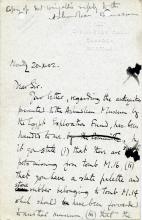 Copy of
reply to the
Ashmolean Museum
Dear Sir.
Your letter, regarding the antiquities
presented to the Ashmolean Museum by
the Egypt Exploration Fund, has been
handed to me.
you state (1) that there are
pots missing from tomb M.16, (ii)
that you have a slate palette and
number belonging to tomb M.14
which should have been forwarded
to another museum (iii) that the